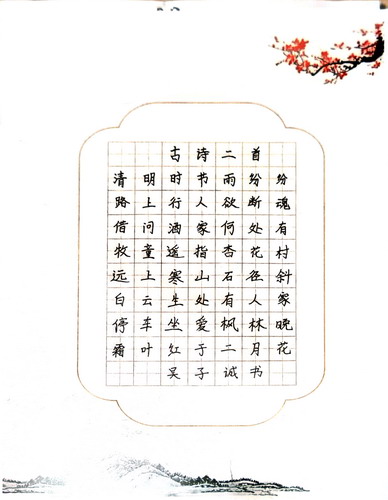 古诗二首
清明时节雨纷纷
路上行人欲断魂
借问酒家何处有
牧童遥指杏花村
远上寒山石径斜
白云生处有人家
停车坐爱枫林晚
霜叶红于二月花
吴子诚书